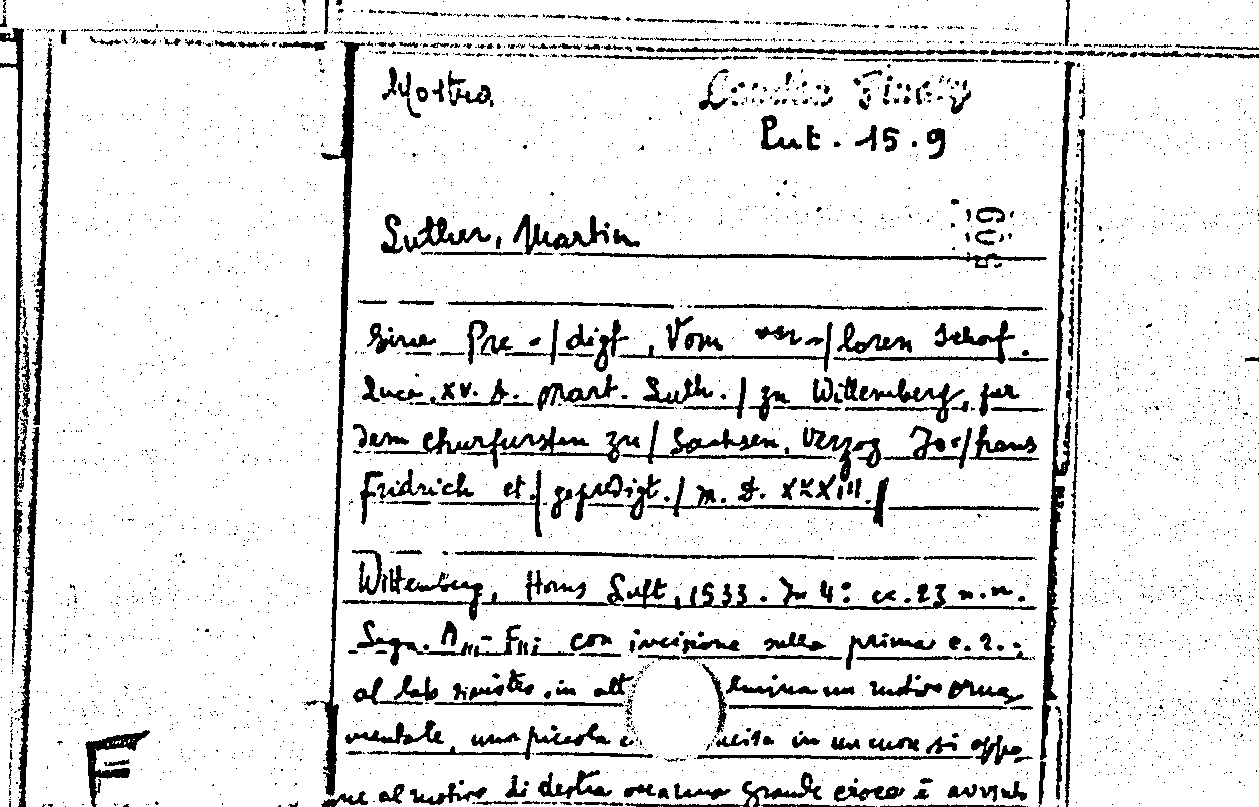 Mostra
Landau Finaly
Put. 15.9
Luther, Martin
509
Eine Pre-/digt, Vom ver-/loren Schaf.
Luce. XV. D. Mart. Luth. / zu Wittemberg, fur
dem Churfursten zu / Sachsen, Herzog Jo-/hans
Fridrich et. / gepredigt. / M. D. XXXIII. /
Wittemberg, Hans Luft, 1533. In 4° cc. 23 n.n.
Segn. Aiii-Fiii con incisione sulla prima c. r.:
al lato sinistro in alt un motivo orna
mentale, una piccola in un cuore si oppo
ne al motivo di destra una grande croce è avvinta